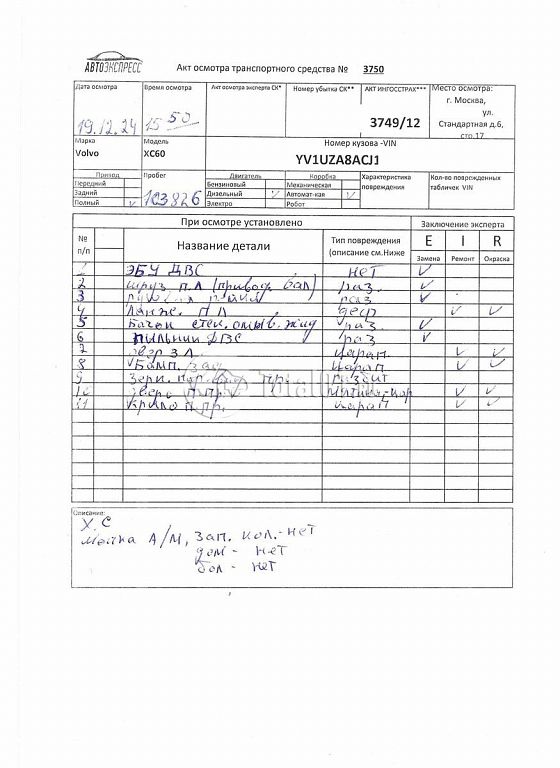 АВТОЭКСПРЕСС
Акт осмотра транспортного средства № 3750
Дата осмотра Время осмотра Акт осмотра эксперта СК* Номер убытка СК** АКТ ИНГОССТРАХ*** Место осмотра:
г. Москва,
ул.
19.12.24 15 50 3749/12 Стандартная д.6,
стр.17
Марка Модель Номер кузова -VIN
Volvo XC60 YV1UZA8ACJ1
Привод Пробег Двигатель Коробка Характеристика повреждения Кол-во поврежденных табличек VIN
Передний Бензиновый Механическая
Задний 103826 Дизельный ✓ Автомат-кая ✓
Полный ✓ Электро Робот
При осмотре установлено Заключение эксперта
№ п/п Название детали Тип повреждения (описание см.Ниже E I R
Замена Ремонт Окраска
1 ЭБУ ДВС нет ✓
2 шруз п.л (привод вал) раз. ✓
3 раз ✓
4 Ланж. П Л деф ✓ ✓
5 Бачок стек. омыв. жид раз. ✓
6 пыльник ДВС раз ✓
7 двер З Л царап. ✓ ✓
8 Бамп. зад царап ✓ ✓
9 Зерк. пр. разбит
10 дверь п пр ✓ ✓
11 крыло п.пр. царап ✓ ✓
Описание:
Х.С
мойка А/М, зап. кол.-нет
дом - нет
бол - нет